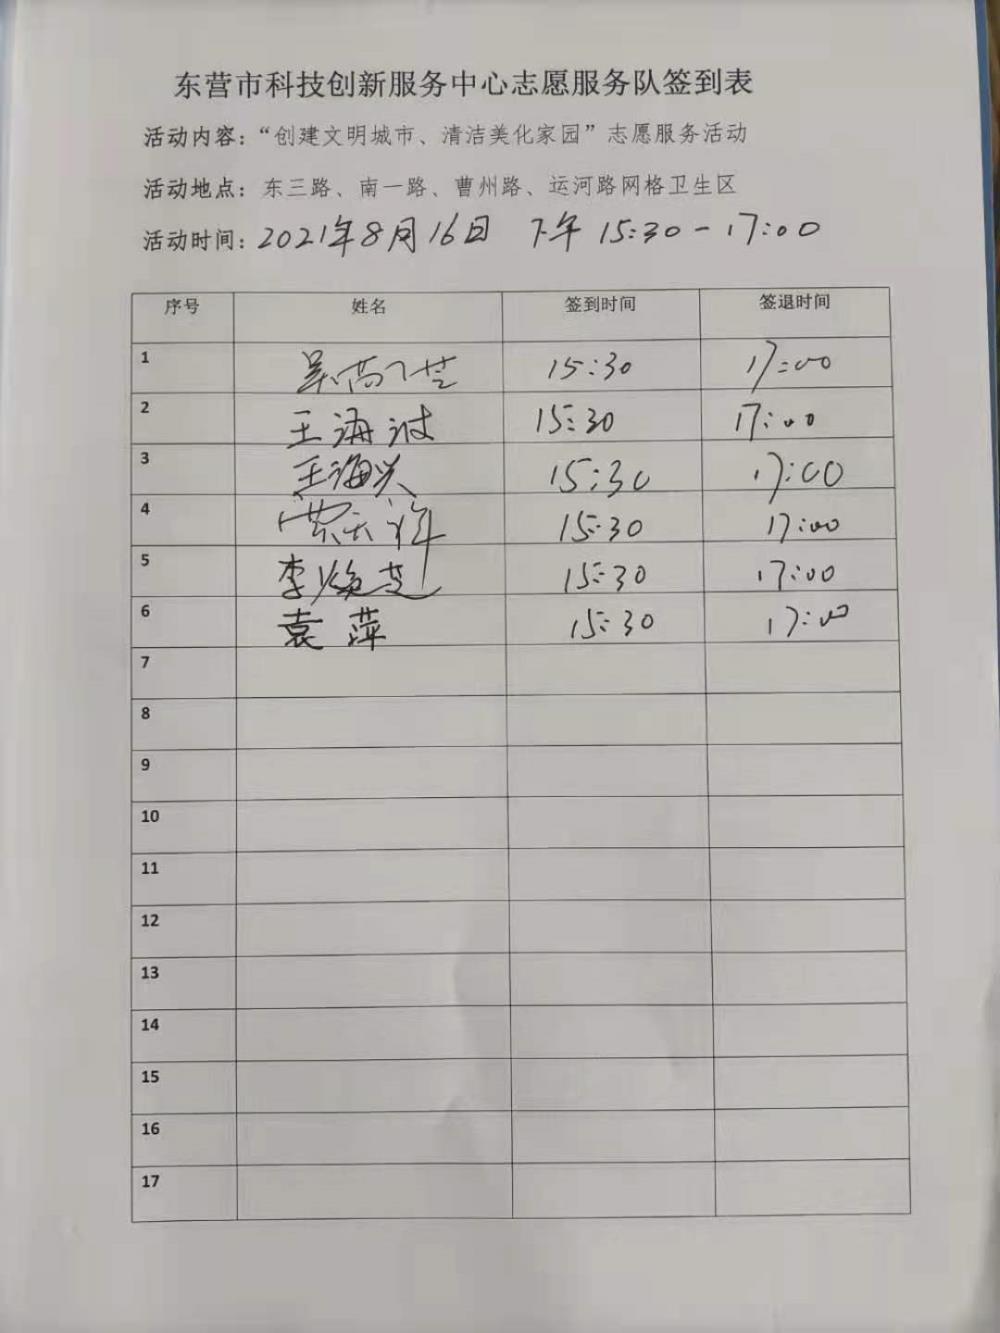 东营市科技创新服务中心志愿服务队签到表
活动内容：“创建文明城市、清洁美化家园”志愿服务活动
活动地点：东三路、南一路、曹州路、运河路网格卫生区
活动时间：2021年8月16日 下午 15:30-17:00
序号 姓名 签到时间 签退时间
1 15:30 17:00
2 王海波 15:30 17:00
3 王海兴 15:30 17:00
4 15:30 17:00
5 李焕芝 15:30 17:00
6 袁萍 15:30 17:00
7
8
9
10
11
12
13
14
15
16
17